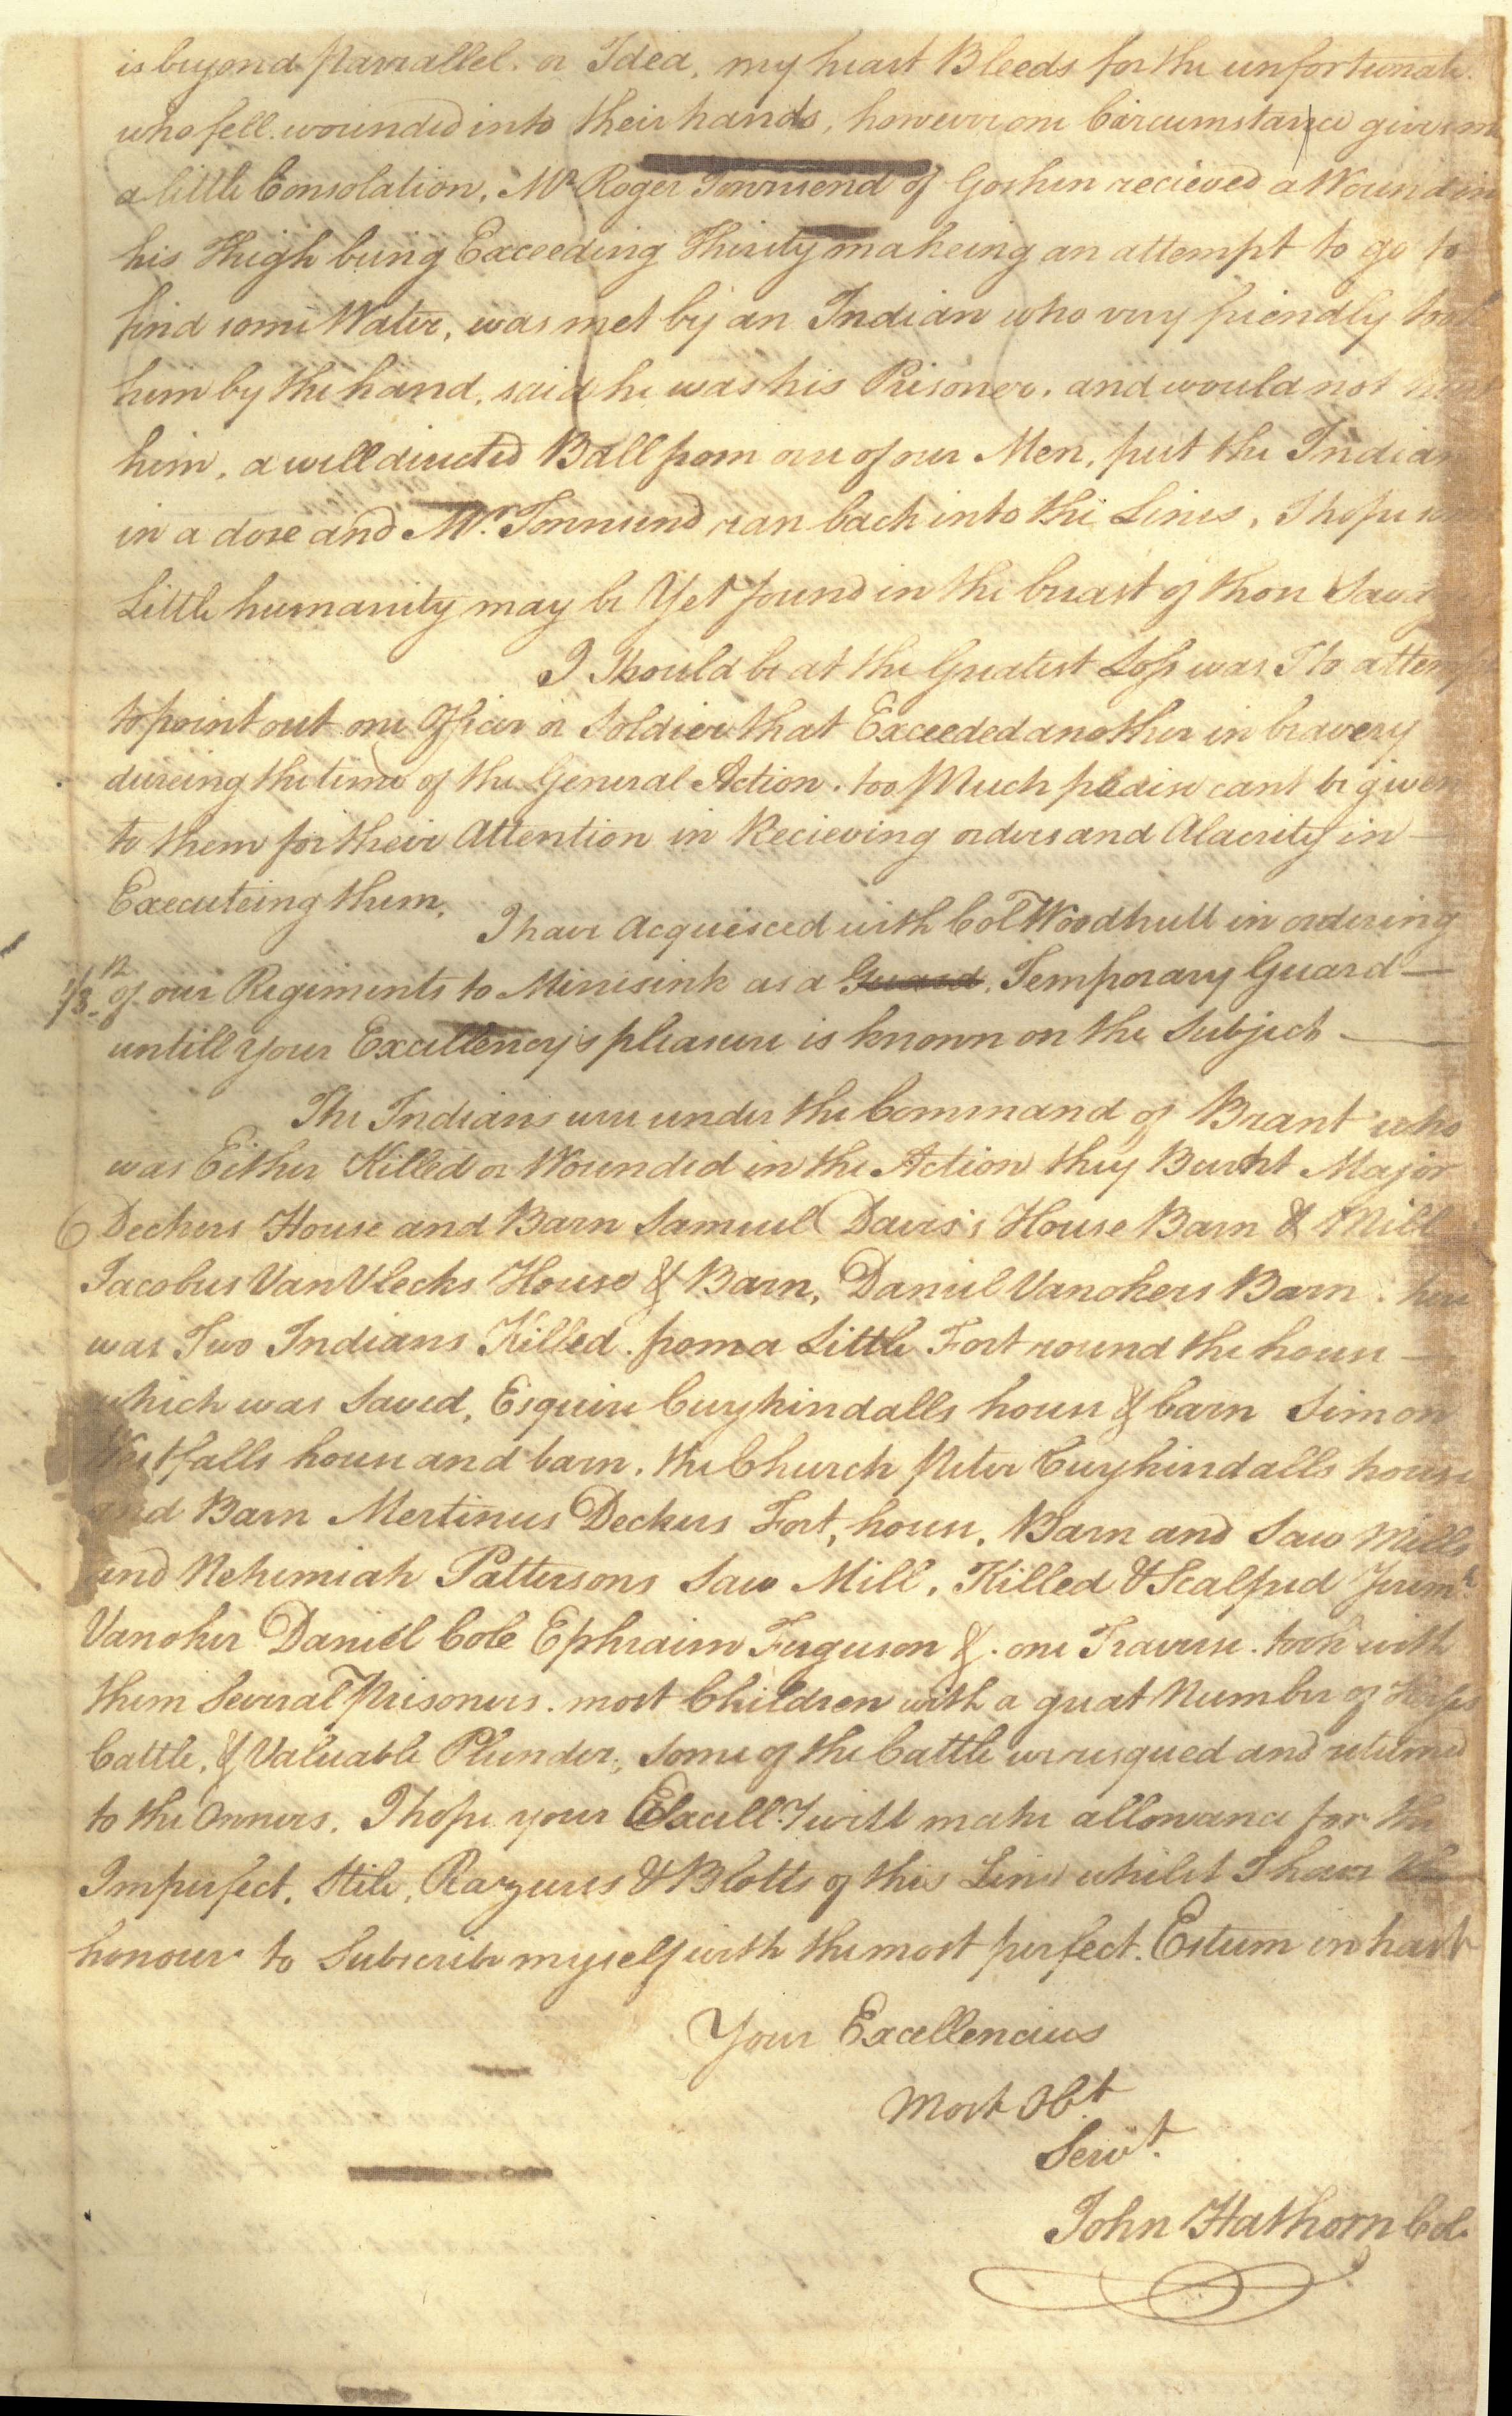 is beyond Parrallel. or Idea, my heart Bleeds for the unfortunate.
who fell wounded into their hands, however one Circumstance gives me
a little Consolation, Mr. Roger Townsend of Goshen recieved a Wound in
his Thigh being Exceeding Thirsty makeing an attempt to go to
find some Water, was met by an Indian who very friendly took
him by the hand, said he was his Prisoner. and would not hurt
him. a well directed Ball from one of our Men, put the Indian
in a doze and Mr. Townsend ran back into the Lines, I hope some
Little humanity may be Yet found in the breast of those
I Should be at the Greatest Loss was I to attempt
to point out one Officer or Soldier that Exceeded another in bravery
dureing the time of the General Action. too Much praise cant be given
to them for their Attention in Recieving orders and Alacrity in —
Executeing them.
I have Acquiesced with Col Woodhull in ordering
1/8.th of our Regiments to Minisink as a Guard. Temporary Guard —
untill your Excellency's pleasure is known on the Subject —
The Indians were under the Command of Brant who
was Either Killed or Wounded in the Action they Burnt Major
Deckers House and Barn Samuel Davis's House Barn & Mill
Jacobus VanVlecks House & Barn, Daniel Vanokers Barn. here
was Two Indians Killed. from a Little Fort round the house —
which was Saved, Esquire Cuykindalls house & barn Simon
Westfalls house and barn. the Church Peter Cuykindalls house
and Barn Mertinus Deckers Fort, house, Barn and Saw Mills
and Nehemiah Pattersons Saw Mill. Killed & Scalped Jerem.h
Vanoker Daniel Cole Ephraim Ferguson &. one Traverse. took with
them Several Prisoners. most Children with a great Number of Horses
Cattle, & Valuable Plunder, some of the Cattle we resqued and returned
to the Owners. I hope your Excell.y will make allowance for the
Imperfect. Stile, Razures & Blotts of this Line whilst I have the
honour to Subscribe myself with the most perfect. Esteem in hast
Your Excellencies
Most Obt.
Servt.
John Hathorn Col.